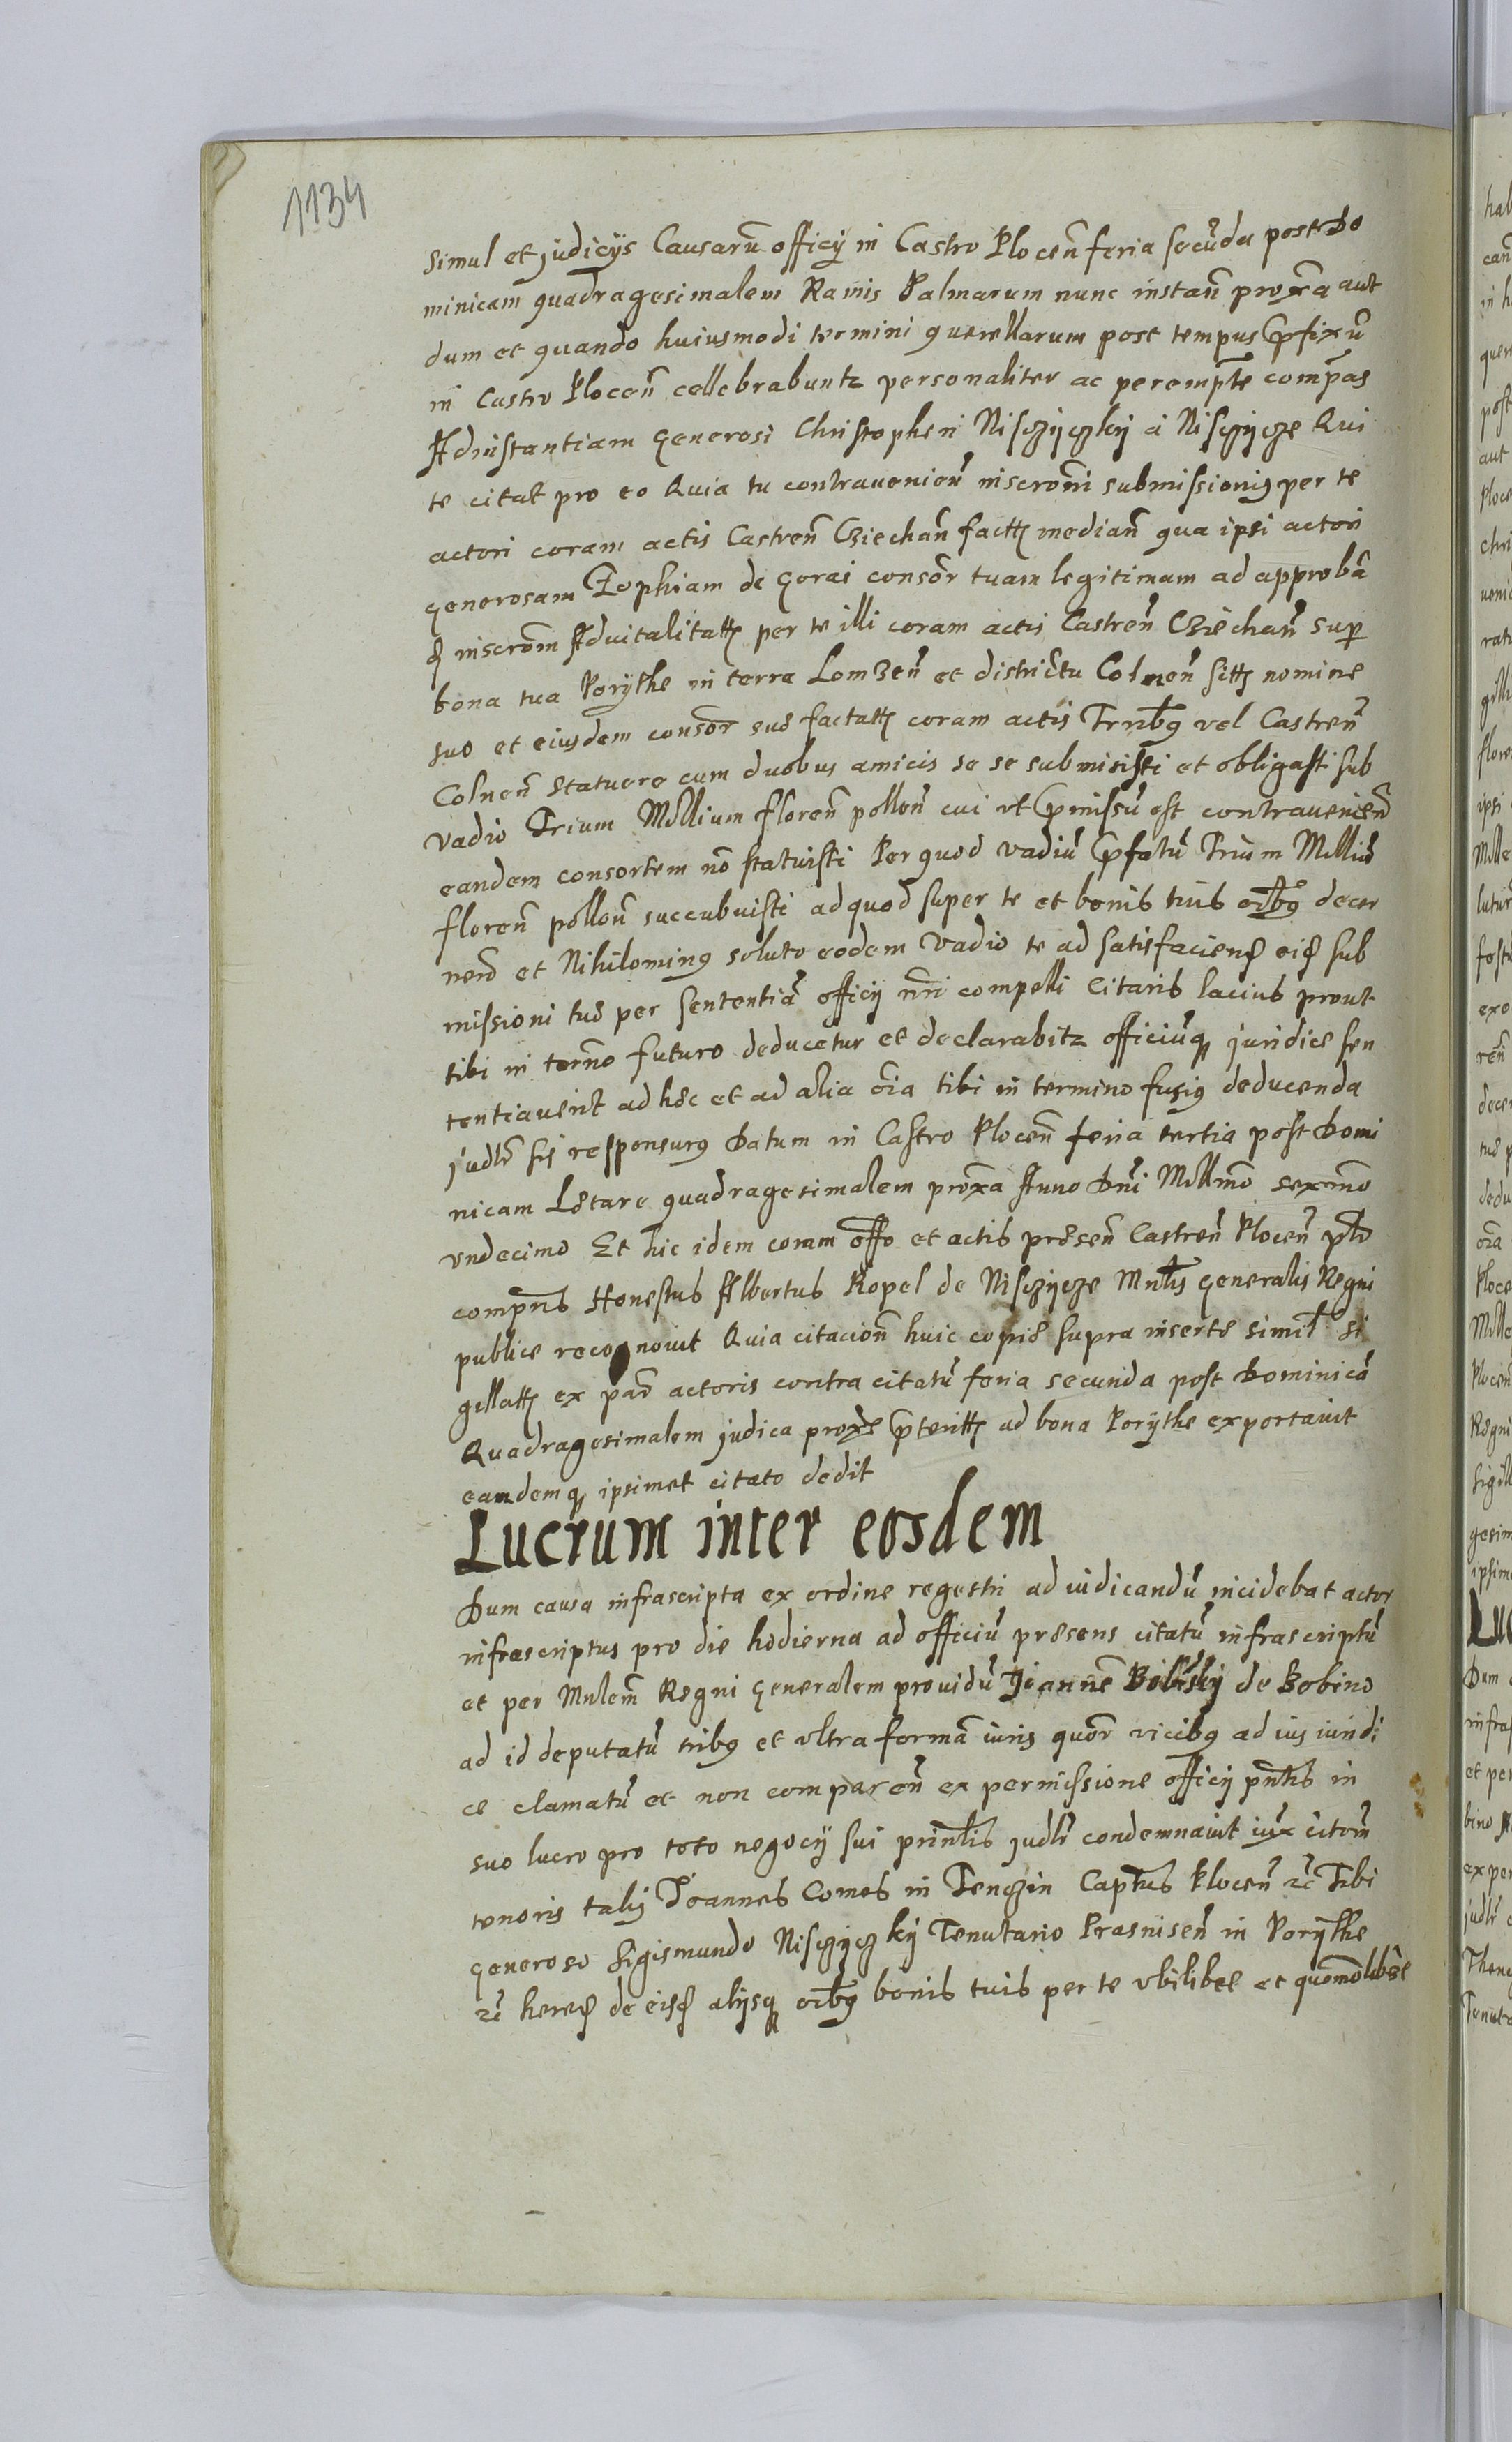 1134
Simul et judicijs Causarũ officij in Castro Plocen̄ feria secũda post Do
minicam quadragesimalem Ramis Palmarum nunc instan̄ prox̄a aut
dum et quando huiusmodi termini querellarum post tempus p̄fixũ
in Castro Plocen̄ cellebrabuntz personaliter ac perempt̄e comp̄as
Ad instantiam generosi Christopheri Nisczyczky a Nisczycze Qui
te citat pro eo Quia tu contravenien̄ inscrōni submissionis per te
actori coram actis Castren̄ Cziechan̄ factȩ median̄ qua ipsi actori
generosam Zophiam de Gorai consōr tuam legitimam ad approbā
ꝺ inscrōm Advitalitatȩ per te illi coram actis Castren̄ Cziechan̄ sup̄
bona tua Porythe in terra Lomzen̄ et districtu Colnen̄ sitȩ nomine
suo et eiusdem consōr suæ factatȩ coram actis Trrībꝯ vel Castren̄
Colnen̄ statuere cum duobus amicis se se submisisti et obligasti sub
vadio Trium Millium floren̄ pollon̄ cui ut p̄missũ est contravenien̄
eandem consortem nō statuisti Per quod vadiũ p̄fatũ Trium Milliũ
floren̄ pollon̄ succubuisti ad quod super te et bonis tuis oībꝯ decer
nend et Nihilominꝯ soluto eodem vadio te ad satisfaciendꝭ eidꝭ sub
missioni tuæ per sententiā officij nr̄i compelli Citaris lacius prout
tibi in termīo futuro deducetur et declarabitz officiũqꝫ juridice sen
tentiaverit ad hæc et ad alia oīa tibi in termino fusiꝯ deducenda
judlr̄ sis responsurꝯ Datum in Castro Plocen̄ feria tertia post Domi
nicam Lætare quadragesimalem prox̄a Anno Dn̄i Millmō sexmō
undecimo Et hic idem coram offo et actis præsen̄ Castren̄ Plocen̄ pltr̄
comp̄ns Honestus Albertus Kopel de Nisczycze Mnlīs generalis Regni
publice recognovit Quia citacion̄ huic copiæ supra insertæ similī si
gillatȩ ex par̄ actoris contra citatũ feria secunda post Dominicā
Quadragesimalem judica prox̄e p̄teritȩ ad bona Porythe exportavit
eandemqꝫ ipsimet citato dedit
Lucrum inter eosdem
Dum causa infrascripta ex ordine regestri ad iudicandũ incidebat actor
infrascriptus pro die hodierna ad officiũ præsens citatũ infrascriptũ
et per Mnlem̄ Regni generalem providũ Joannē Bobiński de Bobino
ad id deputatũ tribꝯ et ultra formā iuris quōr vicibꝯ ad ius iuridi
ce clamatũ et non comparen̄ ex permissione officij pn̄tis in
suo lucro pro toto negocij sui prinlīs judlr̄ condemnavit iux̄ citōm̄
tenoris talis Joannes Comes in Tenczin Capt̄us Plocen̄ rc̄ Tibi
generoso Sigismundo Nisczyczky Tenutario Prasnisen̄ in Porythe
rc̄ heredꝭ de eisdꝭ alijsqꝫ oībꝯ bonis tuis per te ubilibet et quomōlibet